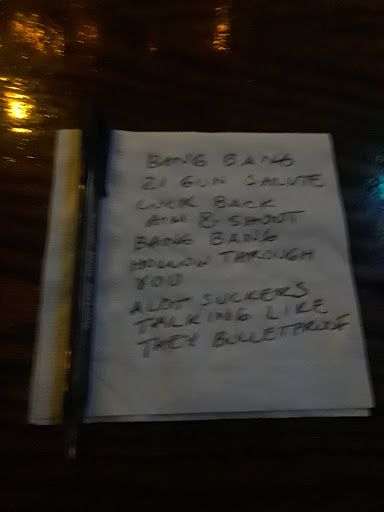 BANG BANG
21 GUN SALUTE
LOCK BACK
AIM & SHOOT
BANG BANG
HOLLOW THROUGH
YOU
ALOT SUCKERS
TALKING LIKE
THEY BULLETPROOF